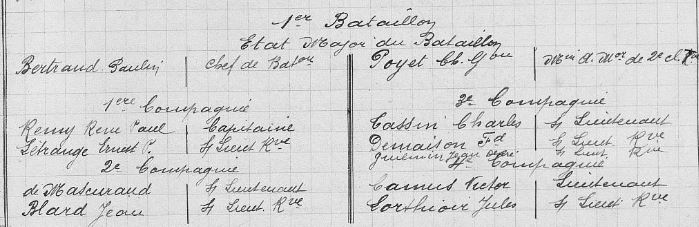 1er Bataillon
Etat Major du Bataillon
Bertrand Paulin Chef de Baton
Poyet Ch. Gon Min A. Mor de 2e cl.
1ere Compagnie
Remy René Paul Capitaine
Létrange Ernest P. S/ Lieut Rve
2e Compagnie
de Mascuraud S/ Lieutenaut
Blard Jean S/ Lieut. Rve
3e Compagnie
Cassin Charles S/ Lieutenant
Demaison Fd S/ Lieut Rve
Guillemin Jean S/ Lieut. Rve
4e Compagnie
Camus Victor Lieutenant
Sorthioir Jules S/ Lieut Rve